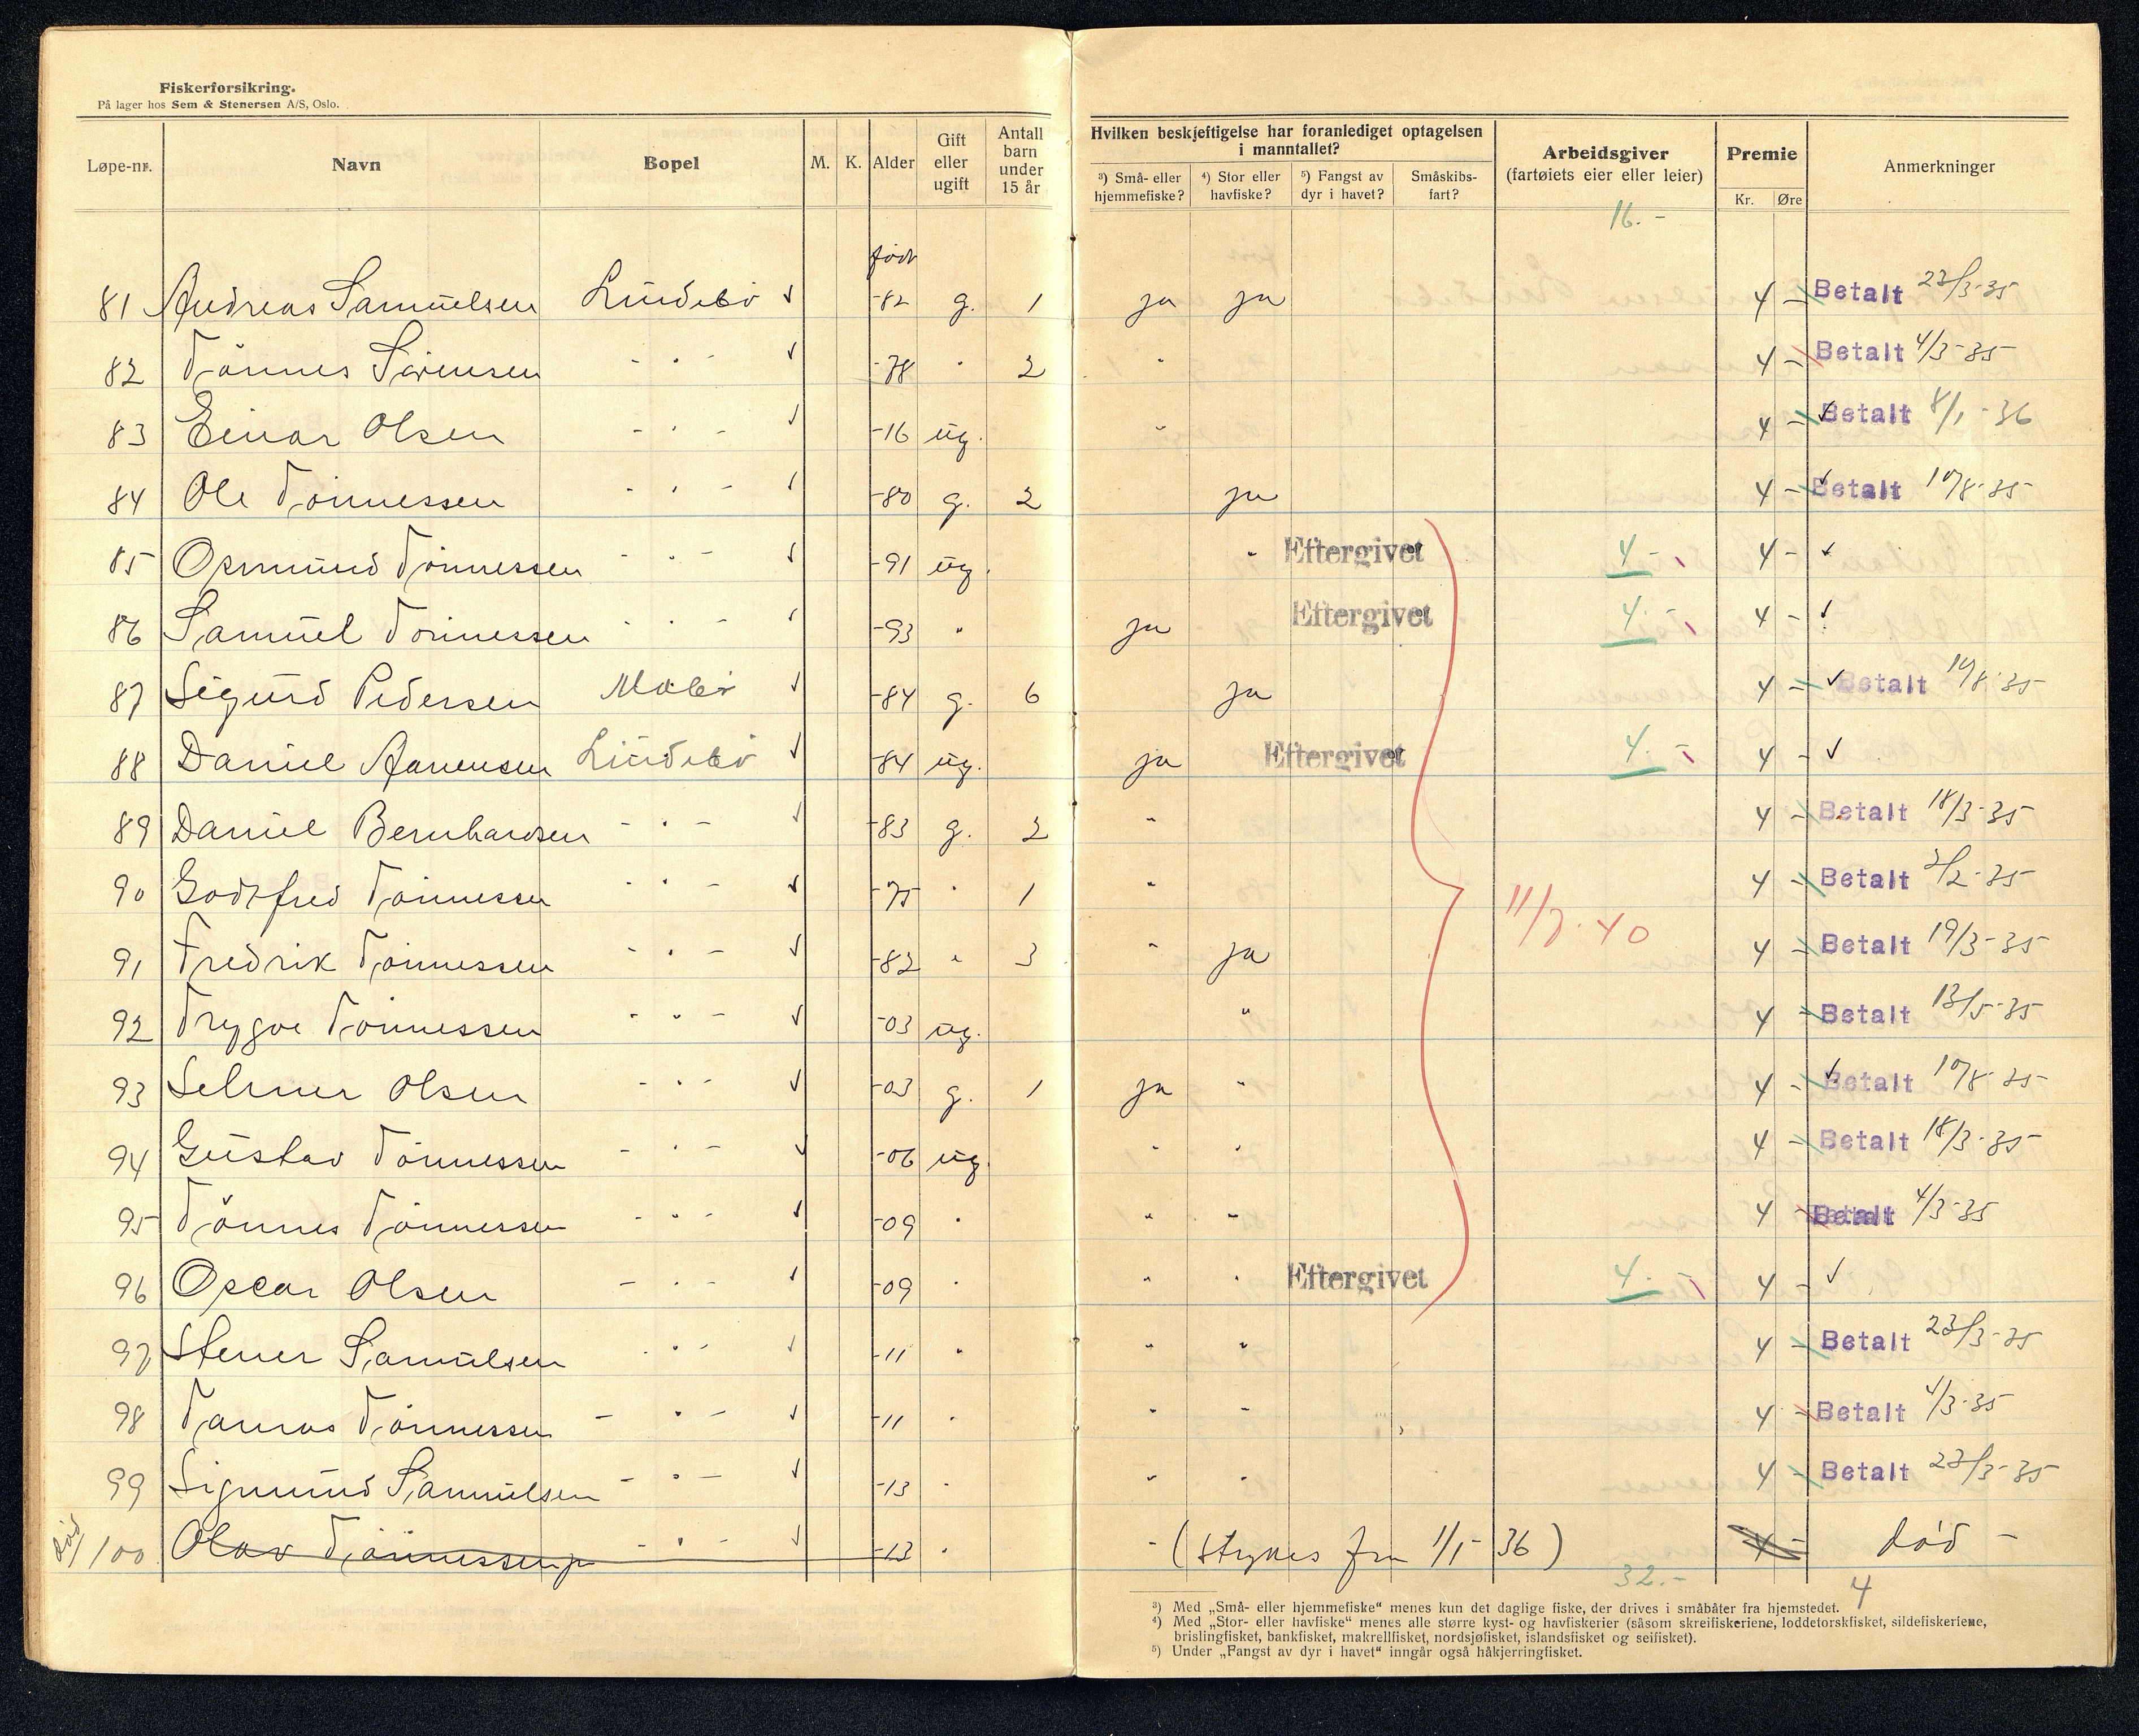 Fiskerforsikring.
På lager hos Sem & Stenersen A/S, Oslo.
Løpe-nr. Navn Bopel M. K. Alder Gift eller ugift Antall barn under 15 år Hvilken beskjeftigelse har foranlediget optagelsen i manntallet? ³) Små- eller hjemmefiske? ⁴) Stor eller havfiske? ⁵) Fangst av dyr i havet? Småskibs-fart? Arbeidsgiver (fartøiets eier eller leier) Premie Kr. Øre Anmerkninger
16.-
født
81 Andreas Samuelsen Lindebö √ -82 g. 1 ja ja 4 - Betalt 23/3-35
82 Tönnes Sörensen - " - √ -78 " 2 " 4 - Betalt 4/3-35
83 Einar Olsen - " - √ -16 ug. " 4 - √ Betalt 8/1-36
84 Ole Tönnessen - " - √ -80 g. 2 ja 4 - √ Betalt 10/8-35
85 Osmund Tönnessen - " - √ -91 ug. " Eftergivet 4.- 4 - √
86 Samuel Tönnessen - " - √ -93 " ja Eftergivet 4.- 4 - √
87 Sigurd Pedersen √ -84 g. 6 ja 4 - √ Betalt 35
88 Daniel Aanensen Lindebö √ -84 ug. ja Eftergivet 4.- 4 - √
89 Daniel Bernhardsen - " - √ -83 g. 2 " 4 - Betalt 18/3-35
90 Godtfred Tönnessen - " - √ -75 " 1 " 4 - Betalt 2/2-35
91 Fredrik Tönnessen - " - √ -82 " 3 " ja 11/7.40 4 - Betalt 19/3-35
92 Trygve Tönnessen - " - √ -03 ug. " 4 - Betalt 13/5-35
93 Selmer Olsen - " - √ -03 g. 1 ja " 4 - √ Betalt 10/8-35
94 Gustav Tönnessen - " - √ -06 ug. " " 4 - Betalt 18/3-35
95 Tönnes Tönnessen - " - √ -09 " " " 4 - Betalt 4/3-35
96 Oscar Olsen - " - √ -09 " " " Eftergivet 4.- 4 - √
97 Stener Samuelsen - " - √ -11 " " " 4 - Betalt 23/3-35
98 Tønnes Tönnessen - " - √ -11 " " " 4 - Betalt 4/3-35
99 Sigmund Samuelsen - " - √ -13 " " " 4 - Betalt 23/3-35
død 100 Olav Tönnessen - " - √ -13 " " (strykes fra 1/1-36) 4 - død -
32.- 4
³) Med „Små- eller hjemmefiske“ menes kun det daglige fiske, der drives i småbåter fra hjemstedet.
⁴) Med „Stor- eller havfiske“ menes alle større kyst- og havfiskerier (såsom skreifiskeriene, loddetorskfisket, sildefiskeriene,
brislingfisket, bankfisket, makrellfisket, nordsjøfisket, islandsfisket og seifisket).
⁵) Under „Fangst av dyr i havet“ inngår også håkjerringfisket.